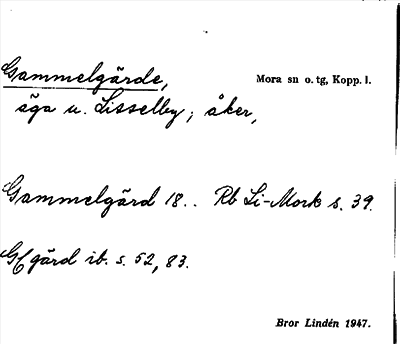 Gammelgärde, Mora sn o. tg, Kopp. l.
äga u. Lisselby; åker,
Gammelgärd 18.. Rb Li-Mork s. 39.
gärd ib. s. 52, 83.
Bror Lindén 1947.